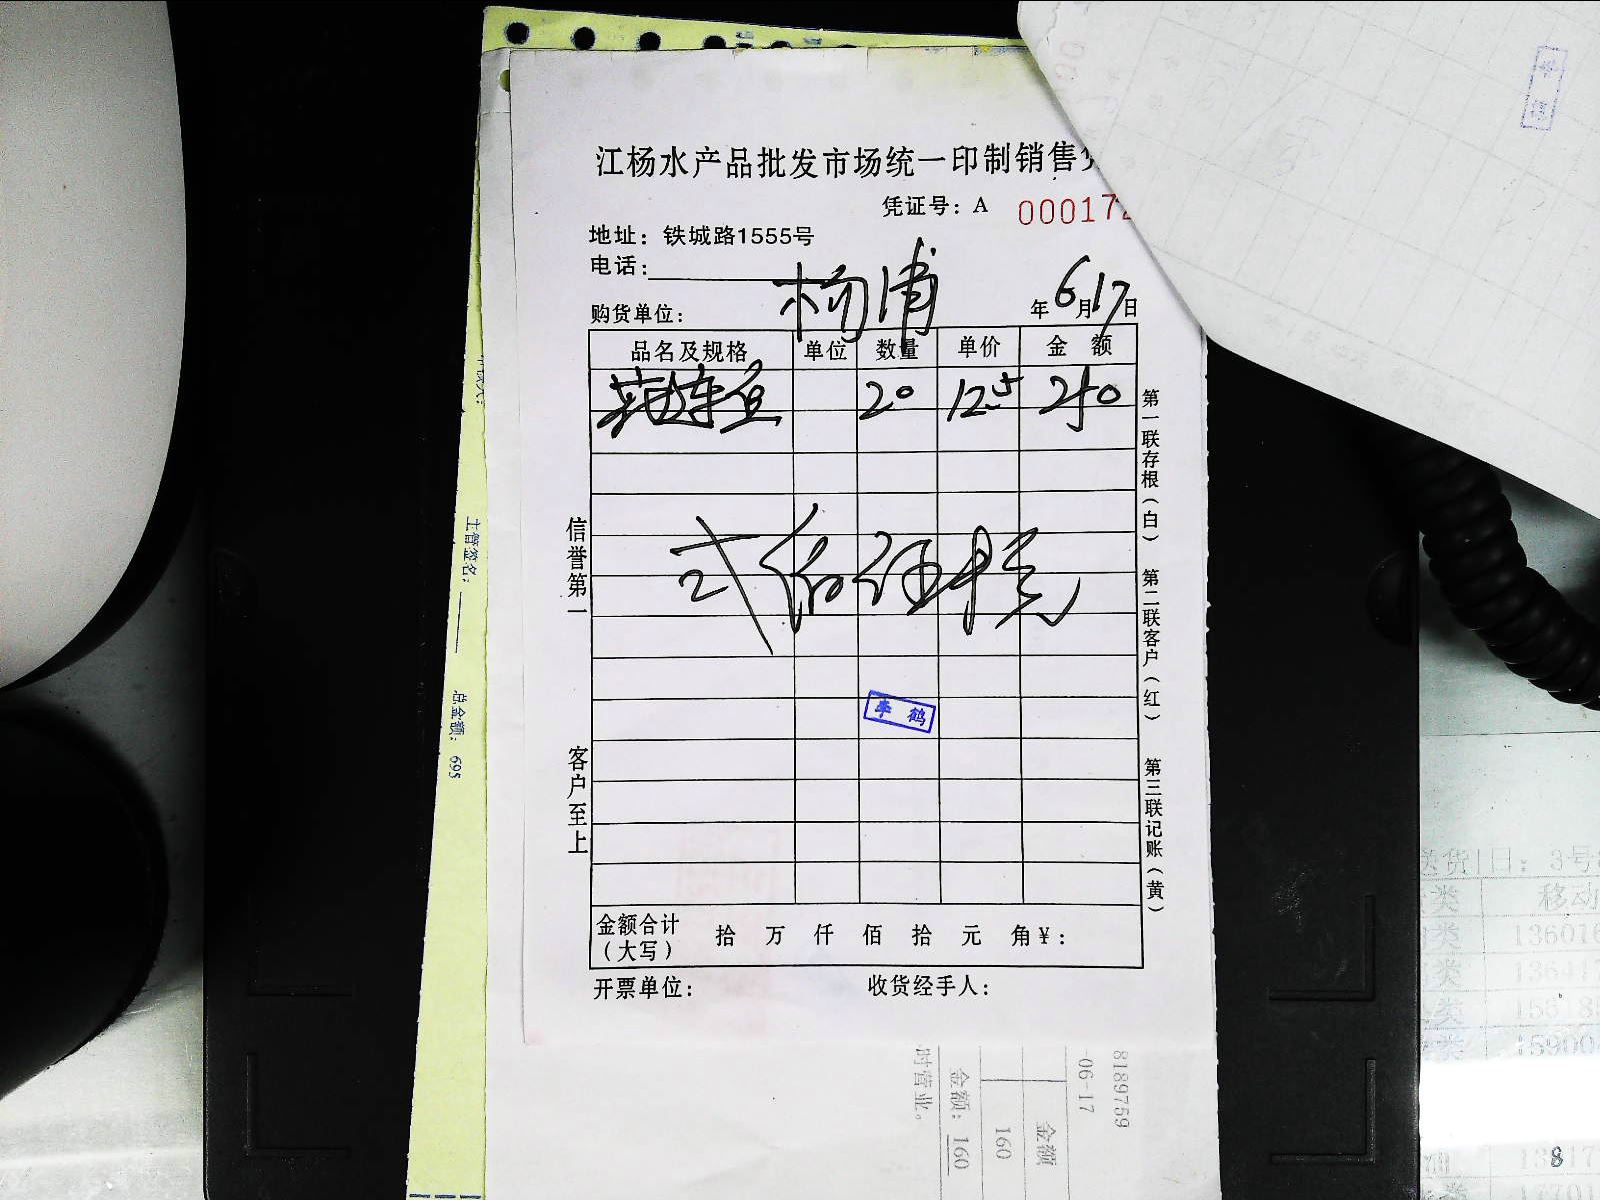 江杨水产品批发市场统一印制销售
凭证号：A 000172
地址：铁城路1555号
电话：
购货单位： 杨浦 年6月17日
品名及规格 单位 数量 单价 金额
20 12.5 250
弍佰伍拾元
李鹤
金额合计（大写） 拾 万 仟 佰 拾 元 角 ¥：
开票单位： 收货经手人：
信誉第一
客户至上
第一联存根（白）
第二联客户（红）
第三联记账（黄）
主管签名：
总金额：695
8189759
-06-17
金额
160
金额：160
时营业。
送货1日：3号
类 移动
类 13601
类 1364
类
类 15900